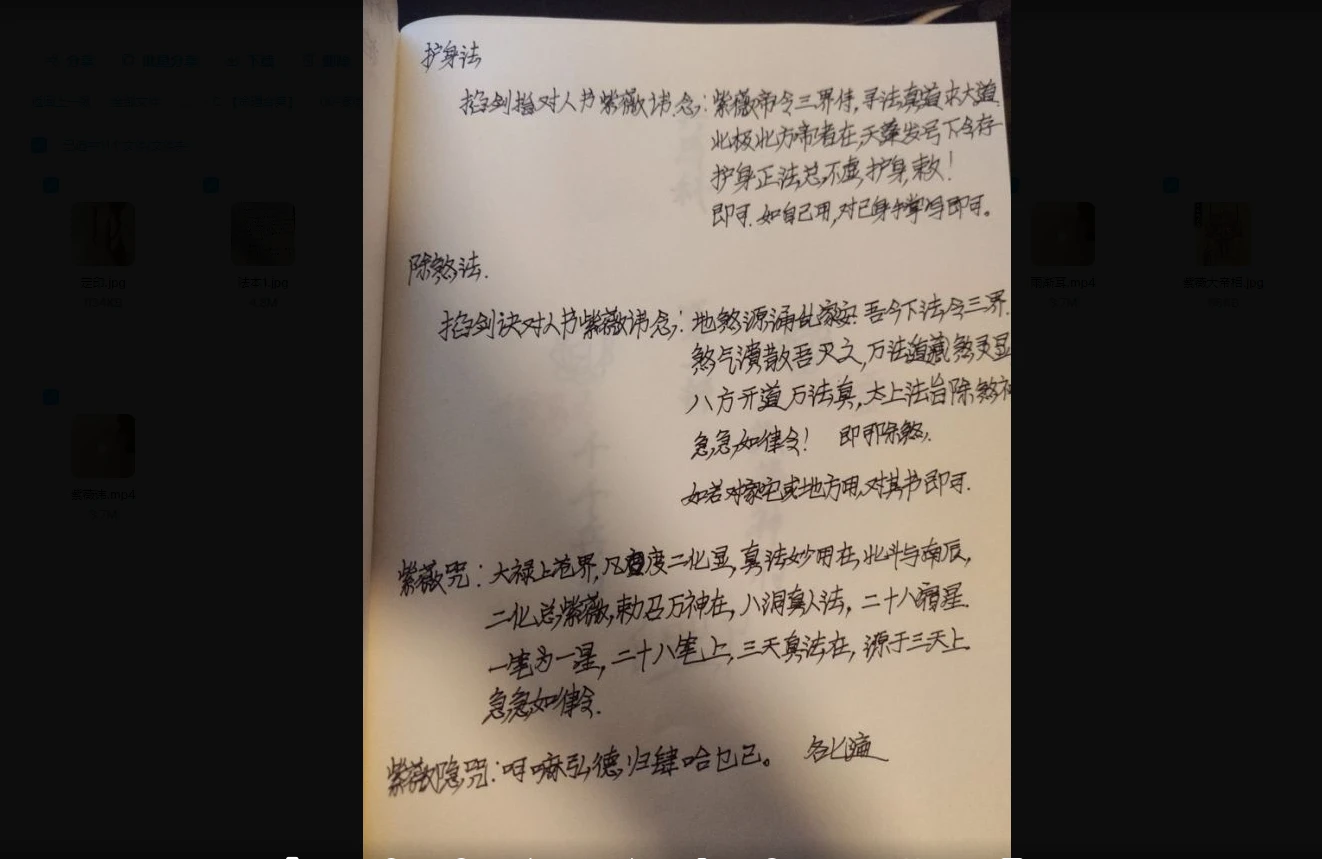 护身法
掐剑指对人书紫薇讳.念: 紫薇帝令三界侍,寻法真道求大道.
北极北方帝者在,天蓬发号下令存
护身正法总不虚,护身,敕!
即可.如自己用,对已身手掌写即可。
除煞法.
掐剑诀对人书紫薇讳念: 地煞源涌乱家安.吾今下法令三界.
煞气溃散吾灭之,万法道藏煞灵显
八方开道万法真,太上法旨除煞
急急如律令! 即可除煞.
如若对家宅或地方用,对其书即可.
紫薇咒: 大禄上苍界,凡度二化显,真法妙用在,北斗与南辰,
二化总紫薇,敕召万神在,八洞真人法,二十八宿星.
一笔为一星,二十八笔上,三天真法在,源于三天上.
急急如律令.
紫薇隐咒: 呵嘛弘德归肆哈乜己。 各七遍
歪图.jpg
法本1.jpg
紫薇大帝相.jpg